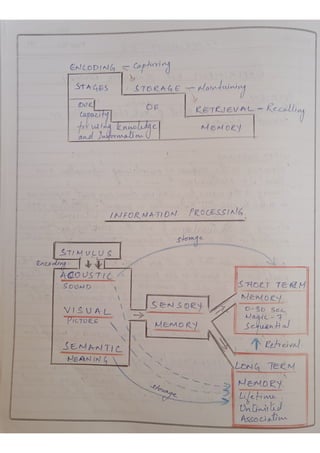 ENCODING = Capturing
STAGES
STORAGE - Maintaining
OUR
capacity
for using knowledge
and Information
OF
RETRIEVAL - Recalling
MEMORY
INFORMATION PROCESSING
storage
STIMULUS
Encoding
ACOUSTIC
SOUND
VISUAL
PICTURE
SEMANTIC
MEANING
SENSORY
MEMORY
SHORT TERM
MEMORY
0-30 sec
Magic-7
Sequential
Retrieval
LONG TERM
MEMORY
Lifetime
Unlimited
Association
storage